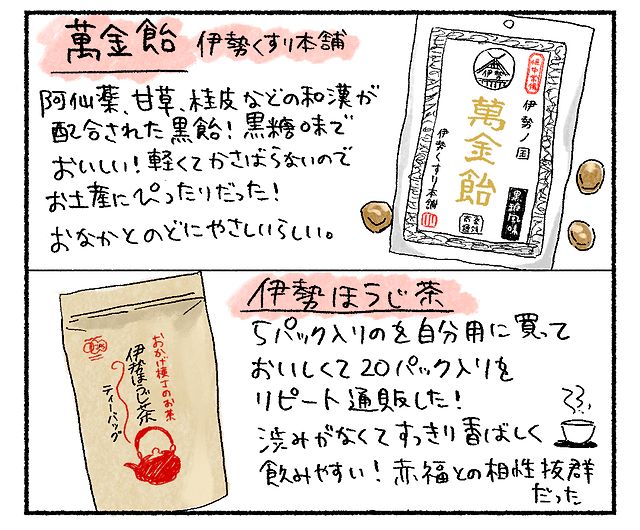 萬金飴 伊勢くすり本舗
阿仙薬、甘草、桂皮などの和漢が
配合された黒飴！黒糖味で
おいしい！軽くてかさばらないので
お土産にぴったりだった！
おなかとのどにやさしいらしい。
伊勢
伊勢ノ国
萬金飴
伊勢くすり本舗
黒糖風味
伊勢ほうじ茶
5パック入りのを自分用に買って
おいしくて20パック入りを
リピート通販した！
渋みがなくてすっきり香ばしく
飲みやすい！赤福との相性抜群
だった
おかげ横丁のお茶
伊勢ほうじ茶
ティーバッグ